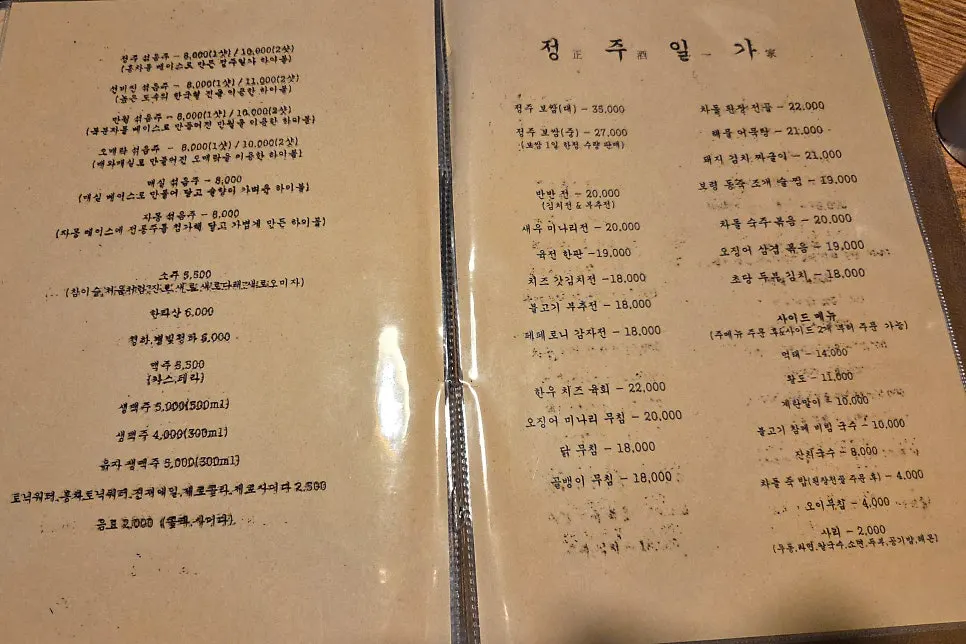 정주 섞음주 - 8,000(1샷) / 10,000(2샷)
(홍차를 베이스로 만든 정주일가 하이볼)
선비진 섞음주 - 8,000(1샷) / 11,000(2샷)
(높은 도수의 한국형 진을 이용한 하이볼)
만월 섞음주 - 8,000(1샷) / 10,000(2샷)
(복분자를 베이스로 만들어진 만월을 이용한 하이볼)
오매락 섞음주 - 8,000(1샷) / 10,000(2샷)
(배와매실로 만들어진 오매락을 이용한 하이볼)
매실 섞음주 - 8,000
(매실 베이스로 만들어 달고 술향이 가벼운 하이볼)
자몽 섞음주 - 8,000
(자몽 베이스에 전통주를 첨가해 달고 가볍게 만든 하이볼)
소주 5,500
(참이슬,처음처럼,진로,새로,새로다래,새로오미자)
한라산 6,000
청하,별빛청하 6,000
맥주 5,500
(카스,테라)
생맥주 5,000(500ml)
생맥주 4,000(300ml)
유자 생맥주 5,000(300ml)
토닉워터,홍차토닉워터,진저에일,제로콜라,제로사이다 2,500
음료 2,000 (콜라,사이다)
정正주酒일一가家
정주 보쌈(대) - 35,000
정주 보쌈(중) - 27,000
(보쌈 1일 한정 수량 판매)
반반 전 - 20,000
(김치전 & 부추전)
새우 미나리전 - 20,000
육전 한판 -19,000
치즈 갓김치전 -18,000
불고기 부추전 - 18,000
페페로니 감자전 - 18,000
한우 치즈 육회 - 22,000
오징어 미나리 무침 - 20,000
닭 무침 - 18,000
골뱅이 무침 - 18,000
차돌 된장 전골 - 22,000
해물 어묵탕 - 21,000
돼지 김치 짜글이 - 21,000
보령 동죽 조개 술찜 - 19,000
차돌 숙주 볶음 - 20,000
오징어 삼겹 볶음 - 19,000
초당 두부 김치 - 18,000
사이드 메뉴
(주메뉴 주문 후&사이드 2개 부터 주문 가능)
먹태 - 14,000
황도 - 11,000
계란말이 - 10,000
불고기 참깨 비빔 국수 - 10,000
잔치국수 - 8,000
차돌 죽 밥(된장전골 주문 후) - 4,000
오이무침 - 4,000
사리 - 2,000
(우동,라면,쌀국수,소면,두부,공기밥,레몬)